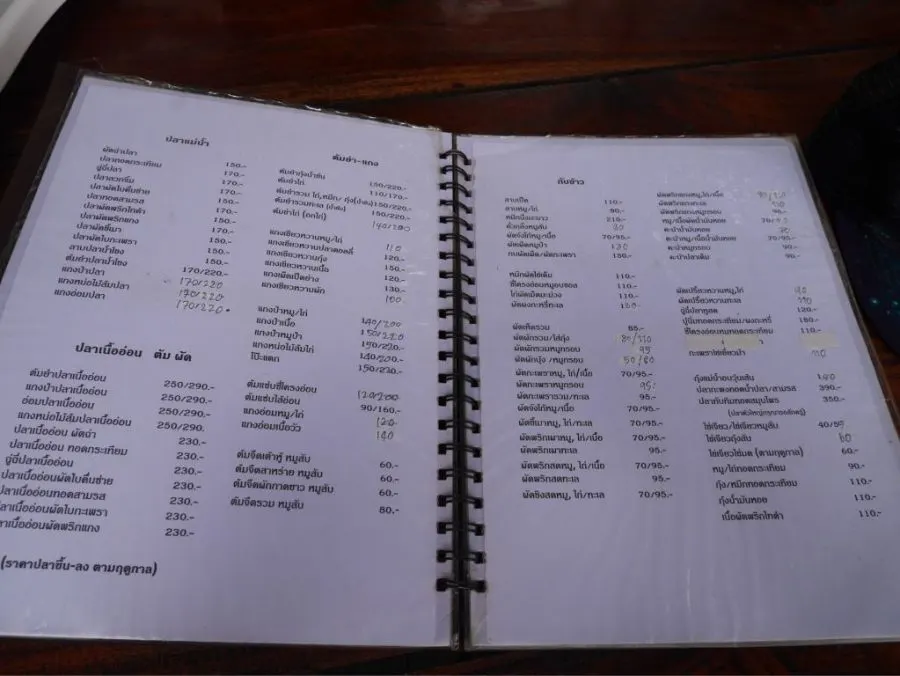 ปลาแม่น้ำ
ผัดฉ่าปลา 150.-
ปลาทอดกระเทียม 170.-
ฉู่ฉี่ปลา 170.-
ปลาลวกจิ้ม 170.-
ปลาผัดใบคื่นช่าย 150.-
ปลาทอดสามรส 170.-
ปลาผัดพริกไทดำ 150.-
ปลาผัดพริกแกง 150.-
ปลาผัดขี้เมา 150.-
ปลาผัดใบกะเพรา 150.-
ลาบปลาน้ำโขง 150.-
ต้มยำปลาน้ำโขง 170/220.-
แกงป่าปลา 170/220
แกงหน่อไม้ส้มปลา 170/220
แกงอ่อมปลา 170/220.
ปลาเนื้ออ่อน ต้ม ผัด
ต้มยำปลาเนื้ออ่อน 250/290.-
แกงป่าปลาเนื้ออ่อน 250/290.-
อ่อมปลาเนื้ออ่อน 250/290.-
แกงหน่อไม้ส้มปลาเนื้ออ่อน 250/290.
ปลาเนื้ออ่อน ผัดฉ่า 230.-
ปลาเนื้ออ่อน ทอดกระเทียม 230.-
ฉู่ฉี่ปลาเนื้ออ่อน 230.-
ปลาเนื้ออ่อนผัดใบคื่นช่าย 230.-
ปลาเนื้ออ่อนทอดสามรส 230.-
ปลาเนื้ออ่อนผัดใบกะเพรา 230.-
ปลาเนื้ออ่อนผัดพริกแกง 230.-
(ราคาปลาขึ้น-ลง ตามฤดูกาล)
ต้มยำ-แกง
ต้มยำกุ้งน้ำข้น 150/220.-
ต้มยำไก่ 110/170.-
ต้มยำรวม ไก่,หมึก/ กุ้ง(น้ำข้น) 150/220.-
ต้มยำรวมทะเล (น้ำข้น) 150/220.-
ต้มข่าไก่ (อกไก่) 140/200
แกงเขียวหวานหมู/ไก่ 110
แกงเขียวหวานปลาดอลลี่ 120.-
แกงเขียวหวานกุ้ง 150.-
แกงเขียวหวานเนื้อ 120.-
แกงเผ็ดเป็ดย่าง 130.-
แกงเขียวหวานผัก 100.
แกงป่าหมู/ไก่ 140/200
แกงป่าเนื้อ 150/220
แกงป่าหมูป่า 150/220.-
แกงหน่อไม้ส้มไก่ 140/200.-
โป๊ะแตก 150/220.-
ต้มแซ่บซี่โครงอ่อน 120/200
ต้มแซ่บไส้อ่อน 90/160.-
แกงอ่อมหมู/ไก่ 120
แกงอ่อมเนื้อวัว 140
ต้มจืดเต้าหู้ หมูสับ 60.-
ต้มจืดสาหร่าย หมูสับ 60.-
ต้มจืดผักกาดขาว หมูสับ 60.-
ต้มจืดรวม หมูสับ 80.-
กับข้าว
ลาบเป็ด 110.-
ลาบหมู/ไก่ 90.-
หมึกนึ่งมะนาว 210.-
คั่วกลิ้งหมูสับ 80
ผัดฉ่าไก่/หมู/เนื้อ 70/95.-
ผัดเผ็ดหมูป่า 120
กบผัดเผ็ด/ผัดกะเพรา 150.-
หมึกผัดไข่เค็ม 110.-
ซี่โครงอ่อนหมูอบซอส 110.-
ไก่ผัดเม็ดมะม่วง 110.-
ผัดผงกะหรี่ทะเล
ผัดผักรวม 85.-
ผัดผักรวม/ไก่กุ้ง 80/110
ผัดผักรวมหมูกรอบ 95
ผัดผักบุ้ง /หมูกรอบ 50/80
ผัดกะเพราหมู, ไก่/เนื้อ 70/95.-
ผัดกะเพราหมูกรอบ 95.
ผัดกะเพรารวม/ทะเล 95.-
ผัดฉ่าไก่หมู/เนื้อ 70/95.-
ผัดขี้เมาหมู, ไก่/ทะเล 70/95.-
ผัดพริกเผาหมู, ไก่/เนื้อ 70/95.-
ผัดพริกเผาทะเล 95.-
ผัดพริกสดหมู, ไก่/เนื้อ 70/95.-
ผัดพริกสดทะเล 95.-
ผัดขิงสดหมู, ไก่/ทะเล 70/95.-
ผัดพริกแกงหมู,ไก่/เนื้อ
ผัดพริกแกงทะเล 110
ผัดพริกแกงหมูกรอบ 95.-
หมู/เนื้อผัดน้ำมันหอย
คะน้าน้ำมันหอย 70
คะน้าหมู/เนื้อน้ำมันหอย 70/95.-
คะน้าหมูกรอบ 90.-
คะน้าปลาเค็ม 90.-
ผัดเปรี้ยวหวานหมู,ไก่ 90
ผัดเปรี้ยวหวานทะเล 110
ฉู่ฉี่ปลาทูสด 120.-
ปูนิ่มทอดกระเทียม/ผงกะหรี่ 180.-
ซี่โครงอ่อนทอดกระเทียม 110.-
กะเพราไข่เยี่ยวม้า 110
กุ้งแม่น้ำอบวุ้นเส้น
ปลากะพงทอดน้ำปลา/สามรส 390.-
ปลาทับทิมทอดสมุนไพร 350.-
ไข่เจียว/ไข่เจียวหมูสับ 40/55
ไข่เจียวกุ้งสับ 60
ไข่เจียวไข่มด (ตามฤดูกาล) 60.-
หมู/ไก่ทอดกระเทียม 90.-
กุ้ง/หมึกทอดกระเทียม 110.-
กุ้งน้ำมันหอย 110.-
เนื้อผัดพริกไทดำ 110.-